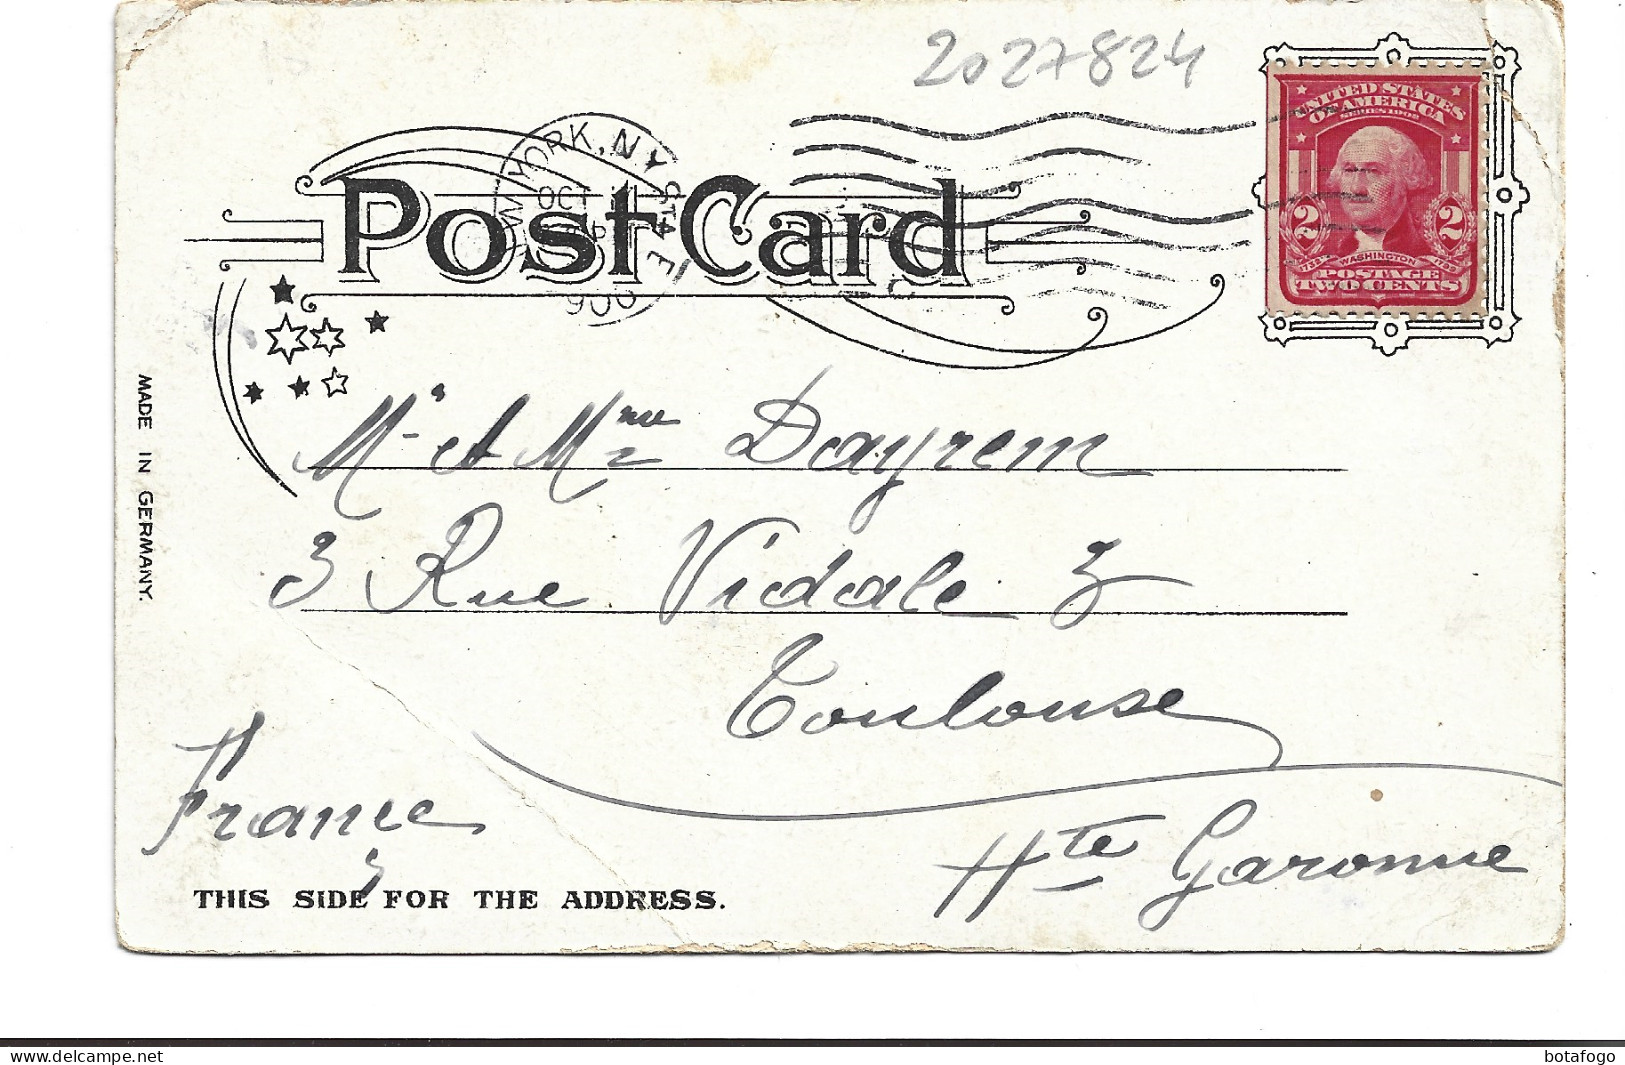 2027824
UNITED STATES
OF AMERICA
SERIES 1902
2 2
1732 WASHINGTON 1799
POSTAGE
TWO CENTS
YORK, N.Y. STA. E
OCT
Post Card
MADE IN GERMANY.
Mr et Mme Dayrem
3 Rue Vidale 3
Toulouse
France
Hte Garonne
THIS SIDE FOR THE ADDRESS.
www.delcampe.net
botafogo